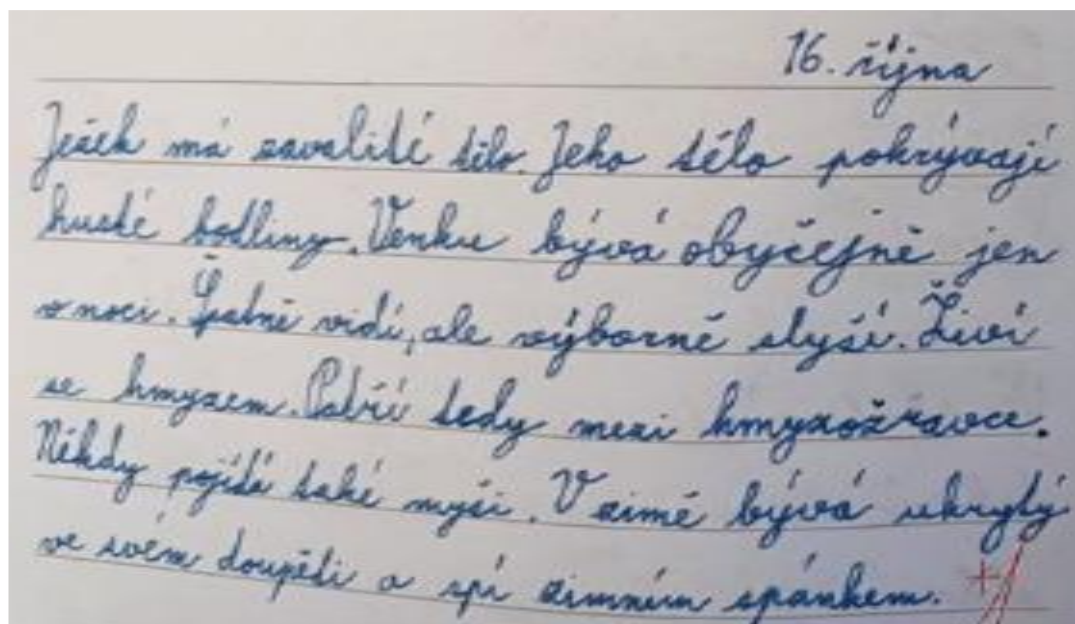 16. října
Ježek má zavalité tělo. Jeho tělo pokrývají
husté bodliny. Venku bývá obyčejně jen
v noci. Špatně vidí, ale výborně slyší. Živí
se hmyzem. Patří tedy mezi hmyzožravce.
Někdy pojídá také myši. V zimě bývá ukrytý
ve svém doupěti a spí zimním spánkem.